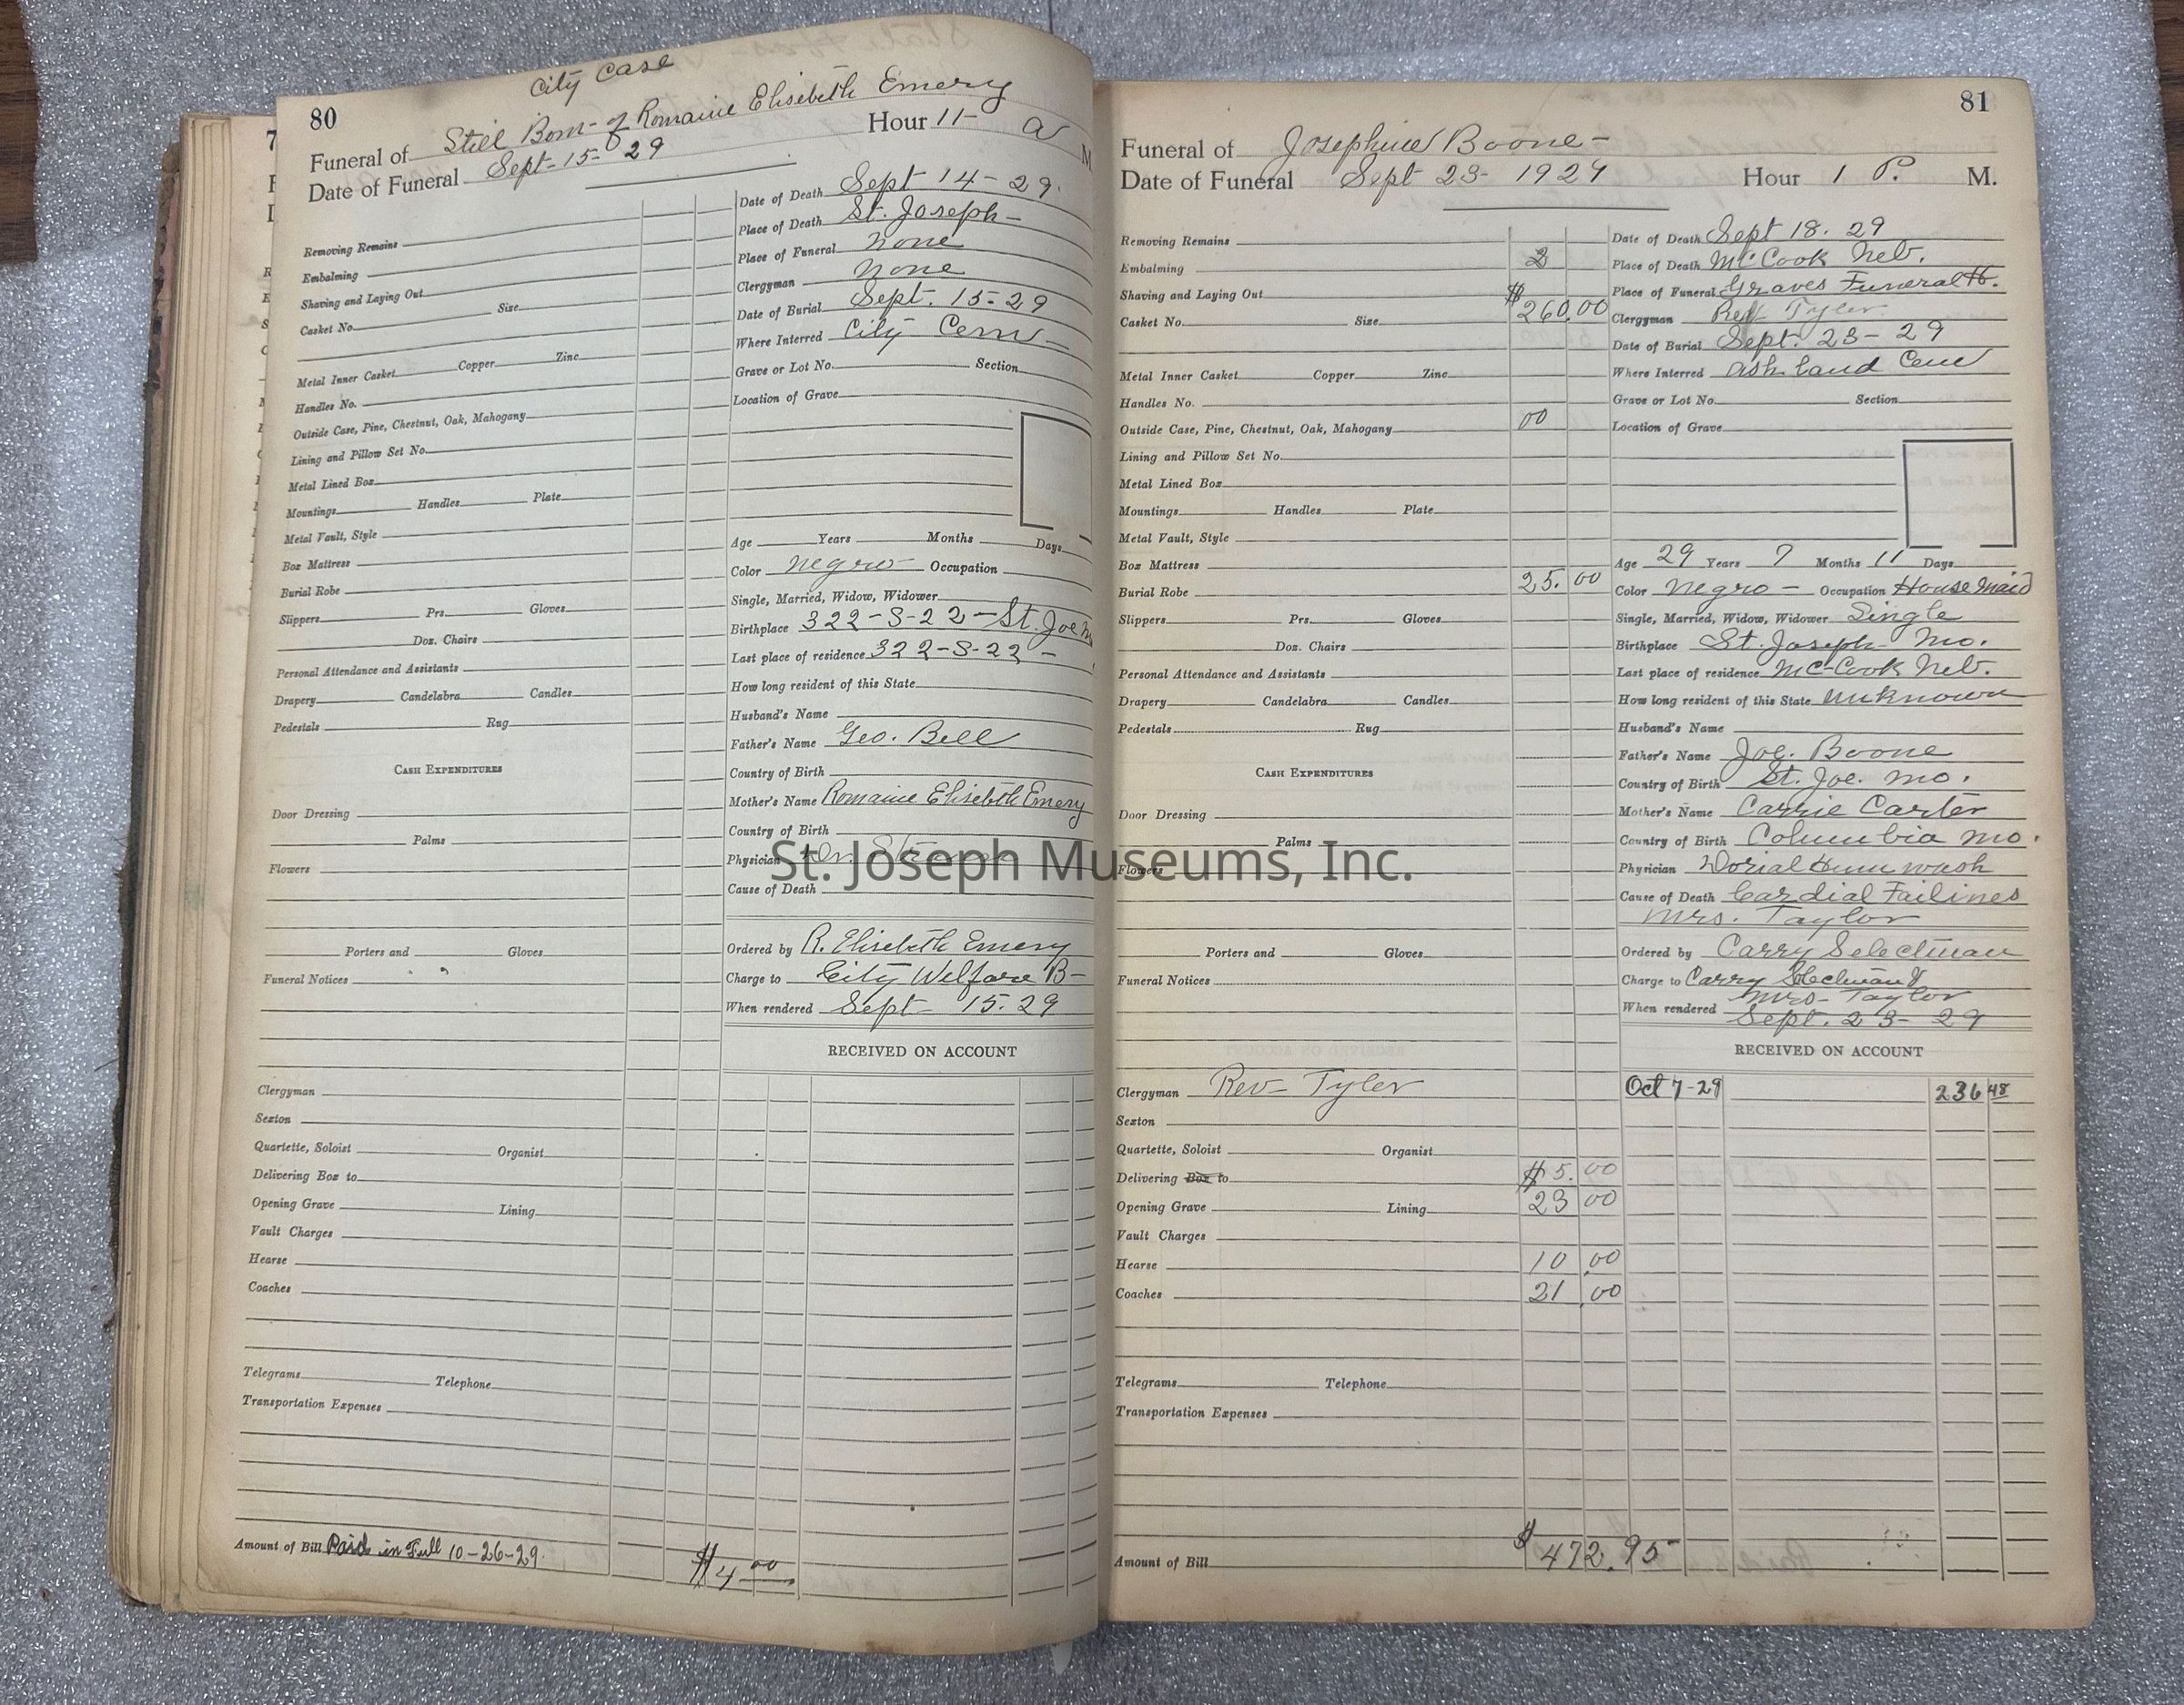 City Case
80
Funeral of Still Born- of Romaine Elisebeth Emery
Date of Funeral Sept-15-29 Hour 11- a M
Removing Remains
Embalming
Shaving and Laying Out
Casket No. Size
Metal Inner Casket Copper Zinc
Handles No.
Outside Case, Pine, Chestnut, Oak, Mahogany
Lining and Pillow Set No.
Metal Lined Box
Mountings Handles Plate
Metal Vault, Style
Box Mattress
Burial Robe
Slippers Prs. Gloves
Doz. Chairs
Personal Attendance and Assistants
Drapery Candelabra Candles
Pedestals Rug
CASH EXPENDITURES
Door Dressing
Palms
Flowers
Porters and Gloves
Funeral Notices
Clergyman
Sexton
Quartette, Soloist Organist
Delivering Box to
Opening Grave Lining
Vault Charges
Hearse
Coaches
Telegrams Telephone
Transportation Expenses
Amount of Bill Paid in Full 10-26-29. $4 00
Date of Death Sept 14-29.
Place of Death St. Joseph-
Place of Funeral None
Clergyman None
Date of Burial Sept. 15-29
Where Interred City Cem-
Grave or Lot No. Section
Location of Grave
Age Years Months Days
Color Negro Occupation
Single, Married, Widow, Widower
Birthplace 322-S-22-St. Joe
Last place of residence 322-S-22-
How long resident of this State
Husband's Name
Father's Name Geo. Bell
Country of Birth
Mother's Name Romaine Elisebeth Emery
Country of Birth
Physician Dr.
Cause of Death
Ordered by R. Elisebeth Emery
Charge to City Welfare B-
When rendered Sept- 15-29
RECEIVED ON ACCOUNT
81
Funeral of Josephine Boone-
Date of Funeral Sept 23- 1929 Hour 1 P. M.
Removing Remains
Embalming
Shaving and Laying Out
Casket No. Size $260.00
Metal Inner Casket Copper Zinc
Handles No.
Outside Case, Pine, Chestnut, Oak, Mahogany 00
Lining and Pillow Set No.
Metal Lined Box
Mountings Handles Plate
Metal Vault, Style
Box Mattress
Burial Robe 25.00
Slippers Prs. Gloves
Doz. Chairs
Personal Attendance and Assistants
Drapery Candelabra Candles
Pedestals Rug
CASH EXPENDITURES
Door Dressing
Palms
Flowers
Porters and Gloves
Funeral Notices
Clergyman Rev- Tyler
Sexton
Quartette, Soloist Organist
Delivering Box to $5.00
Opening Grave Lining 23 00
Vault Charges
Hearse 10.00
Coaches 21.00
Telegrams Telephone
Transportation Expenses
Amount of Bill $472.95
Date of Death Sept 18. 29
Place of Death McCook Neb.
Place of Funeral Graves Funeral H.
Clergyman Rev Tyler
Date of Burial Sept. 23-29
Where Interred Ashland Cem
Grave or Lot No. Section
Location of Grave
Age 29 Years 7 Months 11 Days
Color Negro- Occupation House Maid
Single, Married, Widow, Widower Single
Birthplace St. Joseph- Mo.
Last place of residence Mc-Cook Neb.
How long resident of this State Unknown
Husband's Name
Father's Name Joe. Boone
Country of Birth St. Joe. Mo.
Mother's Name Carrie Carter
Country of Birth Columbia Mo.
Physician
Cause of Death Cardial Failines
Mrs. Taylor
Ordered by Carry Selectman
Charge to Carry Selectman &
Mrs- Taylor
When rendered Sept. 23- 29
RECEIVED ON ACCOUNT
Oct 7-29 236 48
St. Joseph Museums, Inc.